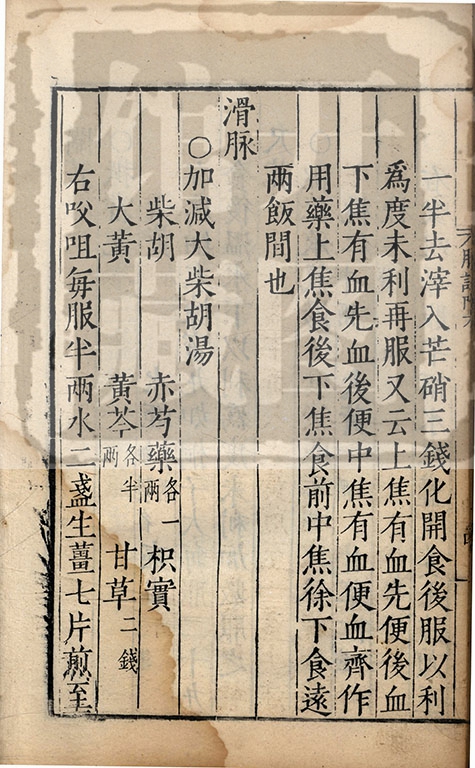 一半去滓入芒硝三錢化開食後服以利
爲度未利再服又云上焦有血先便後血
下焦有血先血後便中焦有血便血齊作
用藥上焦食後下焦食前中焦徐下食遠
兩飯間也
滑脉
○加減大柴胡湯
柴胡 赤芍藥各一兩 枳實
大黃 黃芩各半兩 甘草二錢
右㕮咀每服半兩水二盞生薑七片煎至